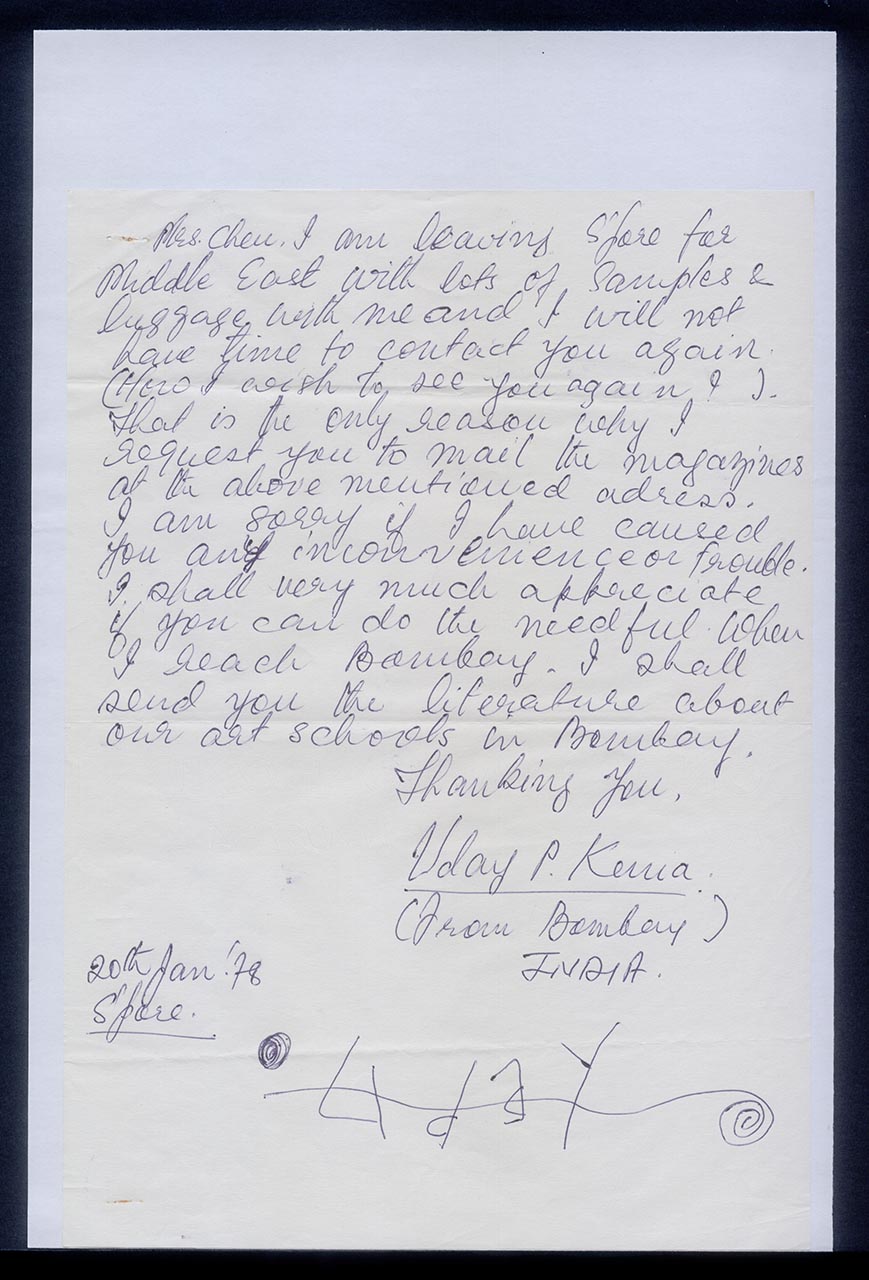 Mrs. Chen. I am leaving S'pore for
Middle East with lots of samples &
luggage with me and I will not
have time to contact you again.
(How I wish to see you again ! ).
That is the only reason why I
request you to mail the magazines
at the above mentioned adress.
I am sorry if I have caused
you any inconvenience or trouble.
I shall very much appreciate
if you can do the needful. When
I reach Bombay. I shall
send you the literature about
our art schools in Bombay.
Thanking You,
Uday P.
(From Bombay)
INDIA.
20th Jan '78
S'pore.